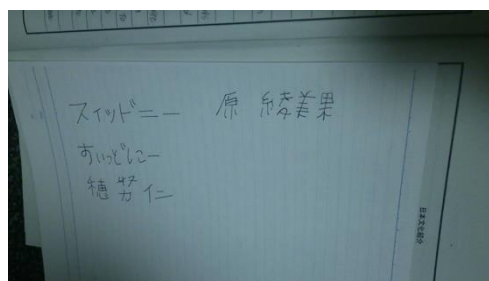 スイッドニー 原 綾美果
すいっどにー
穂努仁
日本文化紹介